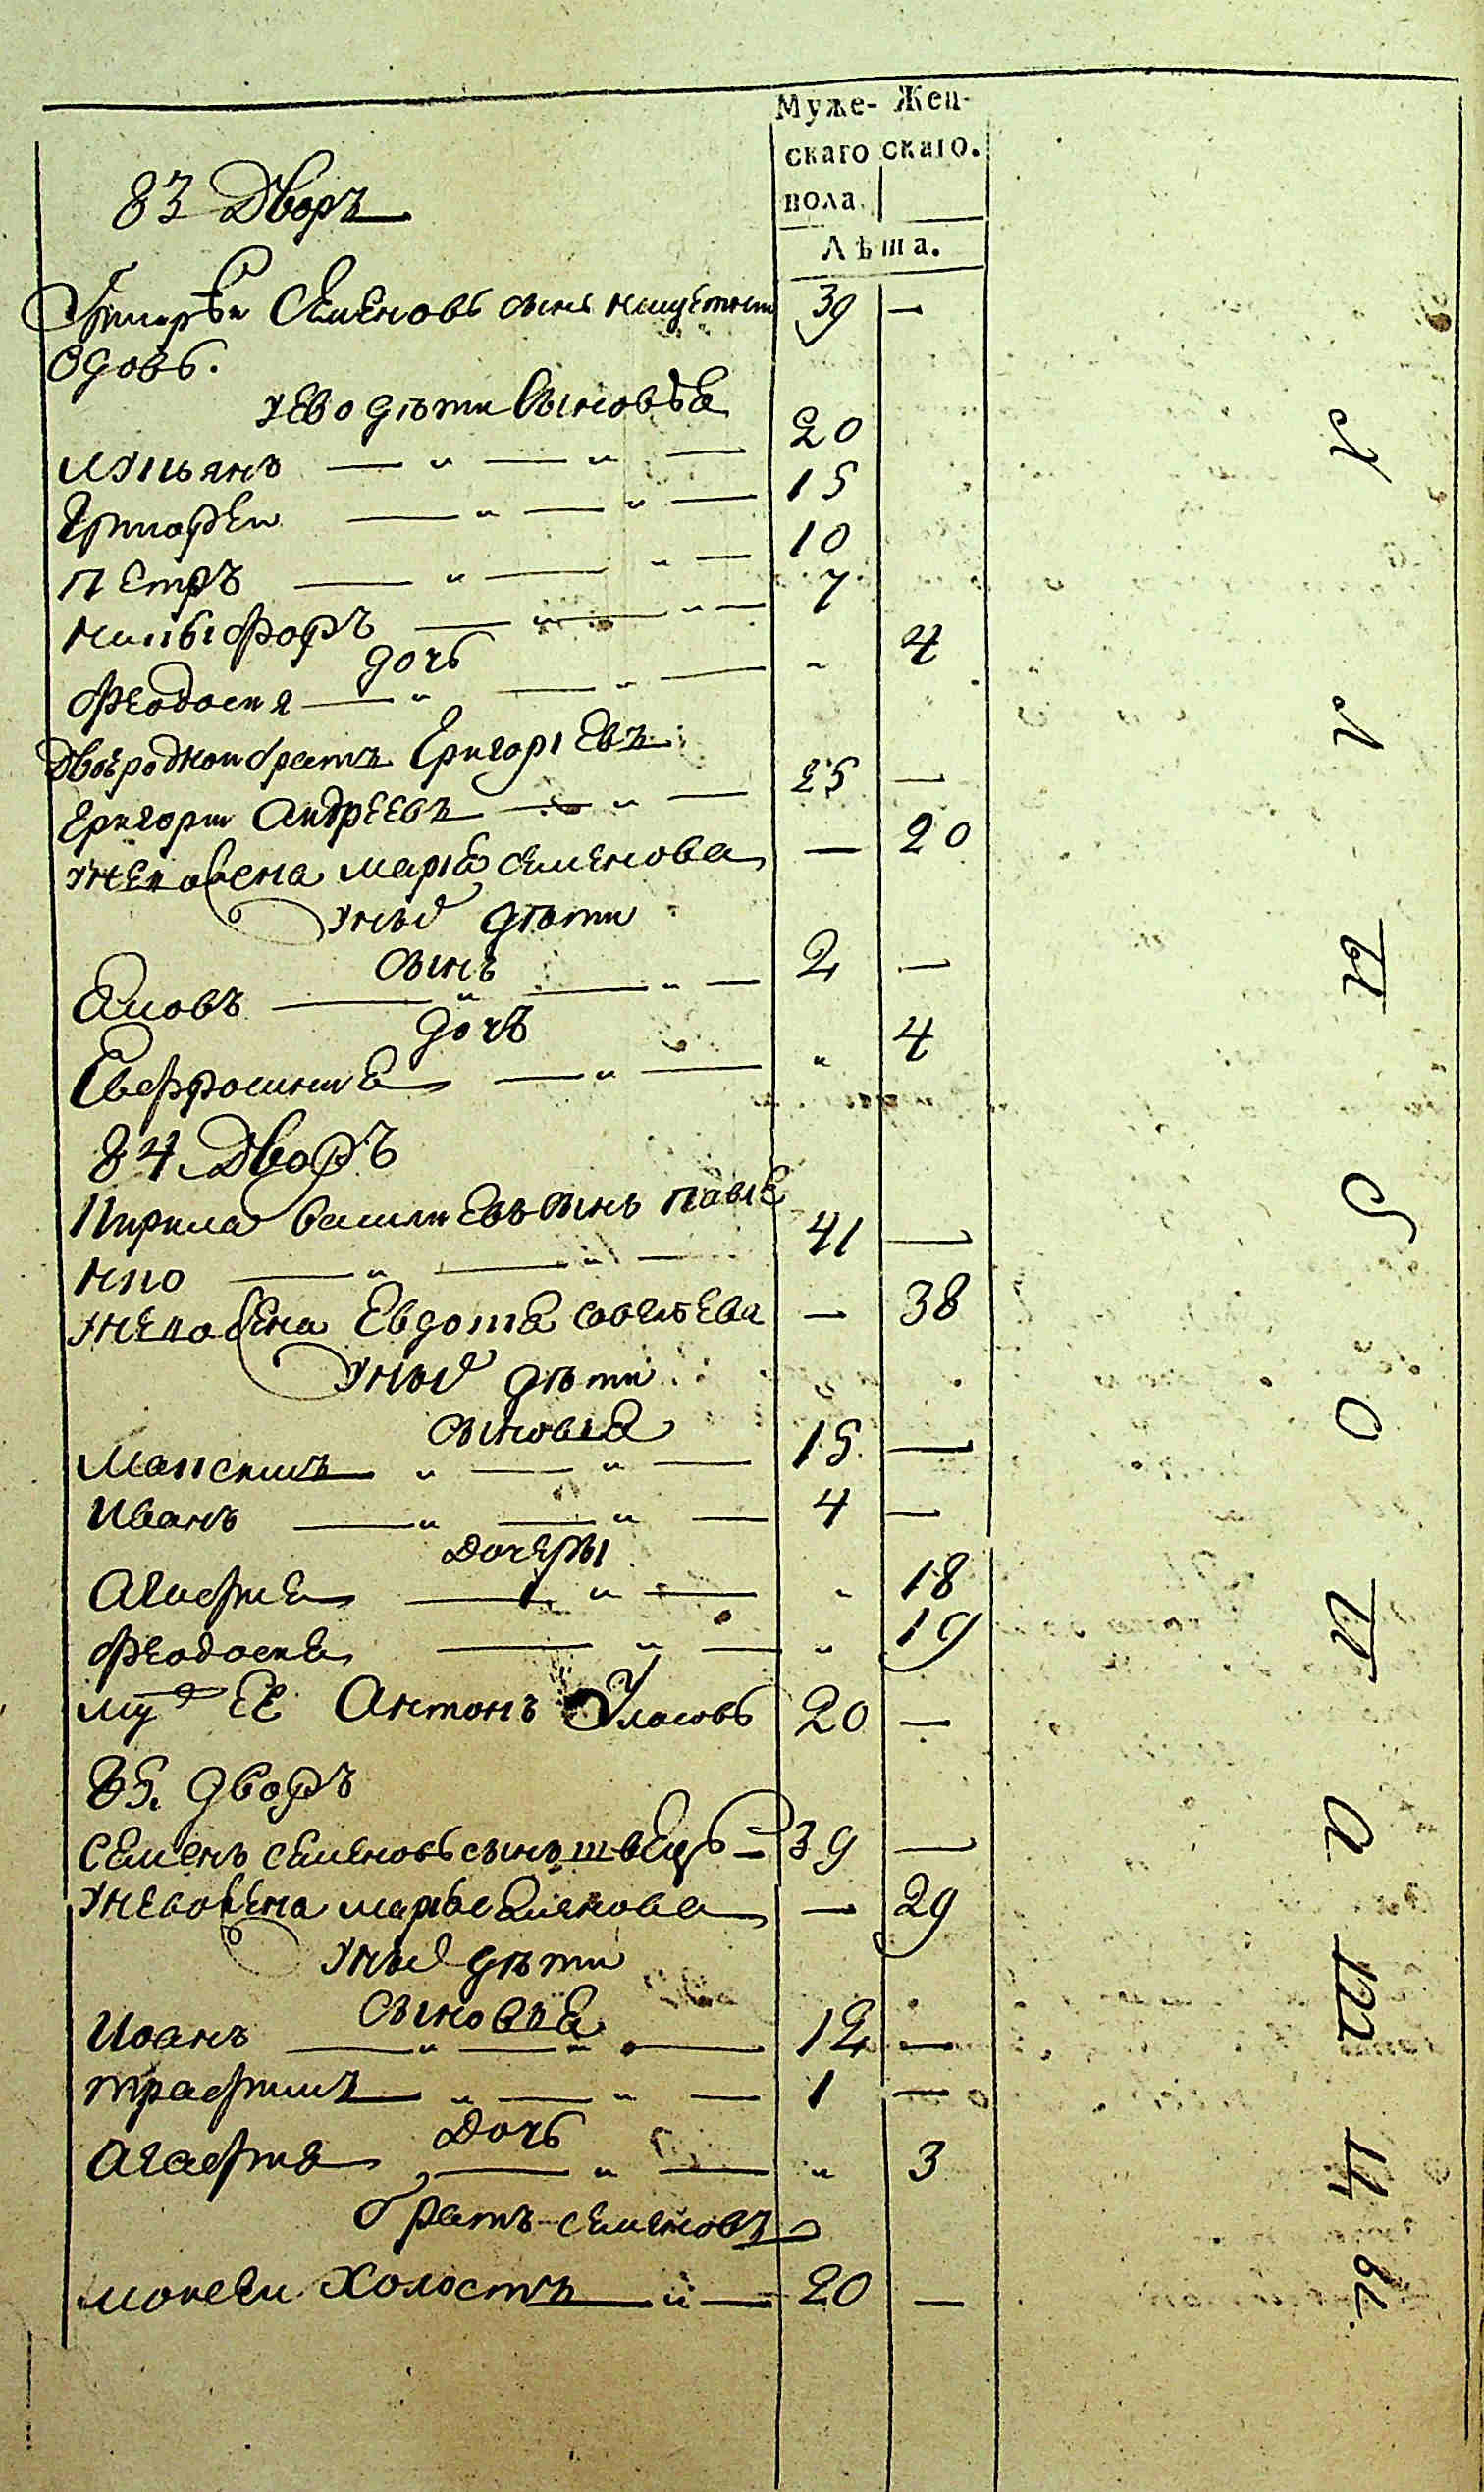 Муже- Жен-
скаго скаго.
пола
Лѣта.
83 Дворъ
Григорѣи Семеновъ сынъ 39 —
вдовъ.
У Ево дѣти Сыновья
Ульянъ — „ — „ — 20
Григорей — „ — „ — 15
Петръ — „ — „ — 10
Никифоръ — „ — „ — 7
дочь
Феодосия — „ — „ — „ 4
Двоюродной братъ Григориевъ
Григори Андреевъ — „ — 25 —
У Него Жена Мария Семенова — 20
У Ныхъ дѣти
сынъ
Яковъ — „ — „ — 2 —
дочь
Евфросиния — „ — „ 4
84 Дворъ
Кирила Василиевъ сынъ Павле
нко — „ — „ — 41 —
У Него Жена Евдокия Савелѣева — 38
У Ныхъ дѣти
сыновья
Максимъ „ — „ — 15 —
Иванъ — „ — „ — 4 —
Дочеры
Агафия — „ — „ 18
Феодосия — „ — „ 19
мужъ Ее Антонъ Уласовъ 20 —
85. дворъ
Семенъ Семеновъ сынъ швецъ — 39 —
У Него Жена Марья Семенова — 29
У Ныхъ дѣти
Сыновья
Иванъ — „ — „ — 12 —
Трафимъ „ — „ — 1 —
Дочь
Агафия — „ — „ 3
братъ Семеновъ
Мокей Холостъ — „ — 20 —